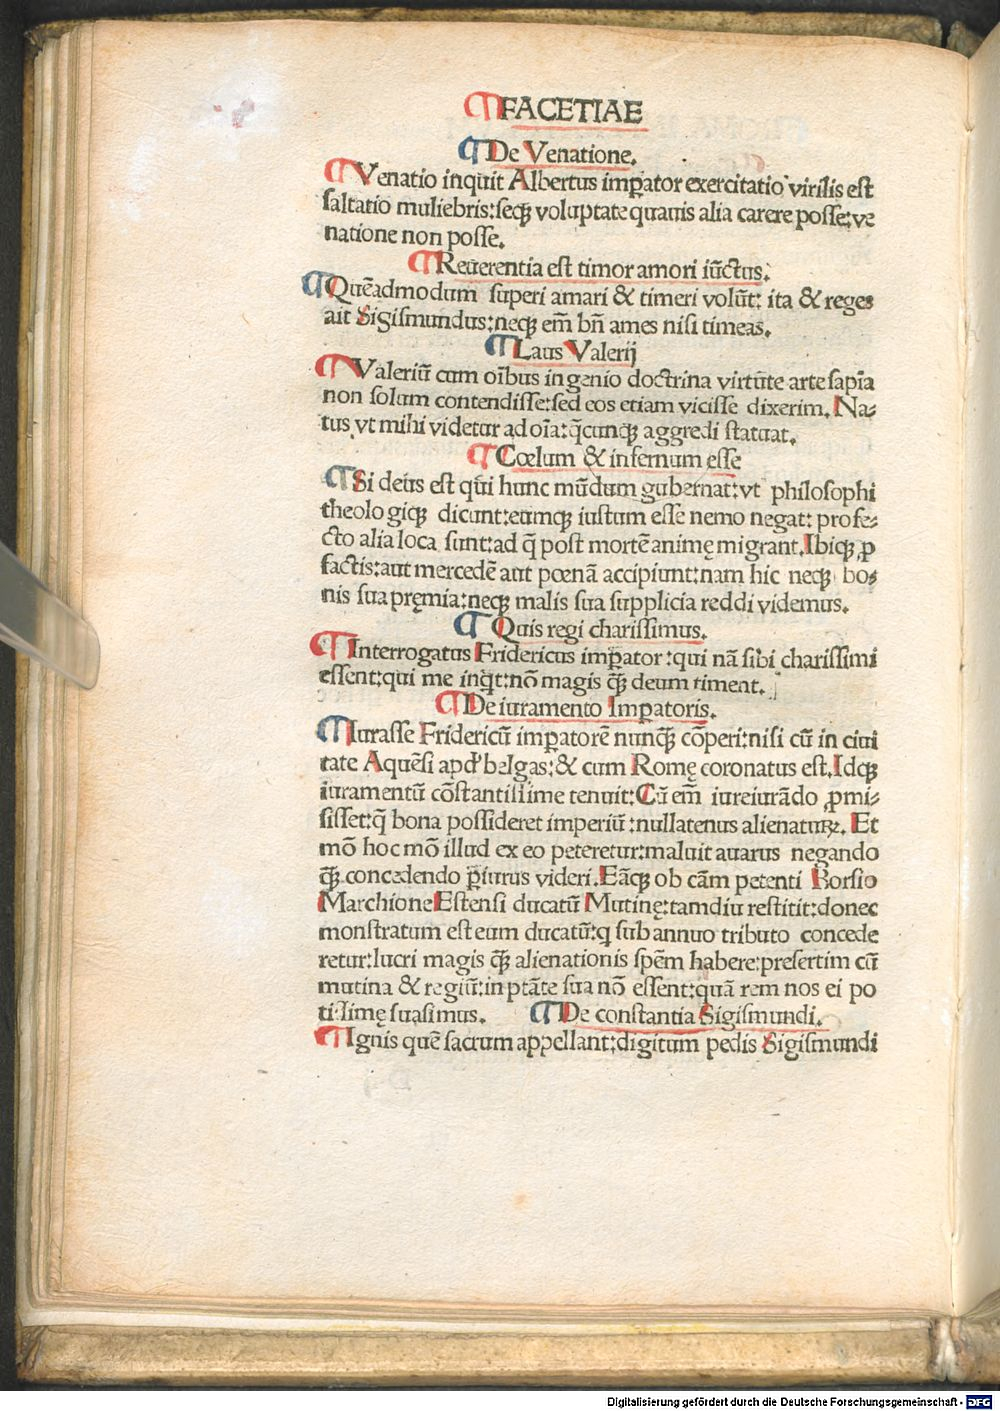 ¶FACETIAE
¶De Venatione.
¶Venatio inquit Albertus imꝑator exercitatio virilis est
saltatio muliebris: seqꝫ voluptate quauis alia carere posse: ve
natione non posse.
¶Reuerentia est timor amori iūctus.
¶Quēadmodum superi amari & timeri volūt: ita & reges
ait Sigismundus: neqꝫ em̄ bn̄ ames nisi timeas.
¶Laus Valerij
¶Valeriū cum oībus ingenio doctrina virtute arte sapīa
non solum contendisse: sed eos etiam vicisse dixerim. Na⸗
tus vt mihi videtur ad oīa: q̄cunqꝫ aggredi statuat.
¶Cœlum & infernum esse
¶Si deus est qui hunc mūdum gubernat: vt philosophi
theologiqꝫ dicunt: eumqꝫ iustum esse nemo negat: profe⸗
cto alia loca sunt: ad q̄ post mortē animę migrant. Ibiqꝫ ꝓ
factis: aut mercedē aut pœnā accipiunt: nam hic neqꝫ bo⸗
nis sua pręmia: neqꝫ malis sua supplicia reddi videmus.
¶Quis regi charissimus.
¶Interrogatus Fridericus imꝑator: qui nā sibi charissimi
essent: qui me inq̇t: nō magis qꝫ̄ deum timent.
¶De iuramento Imꝑatoris.
¶Iurasse Fridericū imꝑatorē nunqꝫ̄ cōperi: nisi cū in ciui
tate Aquēsi apd' belgas: & cum Romę coronatus est. Idqꝫ
iuramentū cōstantissime tenuit: Cū em̄ iureiurādo ꝓmi⸗
sisset: q̄ bona possideret imperiū: nullatenus alienaturꝫ. Et
mō hoc mō illud ex eo peteretur: maluit auarus negando
qꝫ̄ concedendo ꝑiurus videri. Eāqꝫ ob cām petenti Borsio
Marchione Estensi ducatū Mutinę: tamdiu restitit: donec
monstratum est eum ducatū: q sub annuo tributo concede
retur: lucri magis qꝫ̄ alienationis spēm habere: presertim cū
mutina & regiū: in ptāte sua nō essent: quā rem nos ei po
tissimę suasimus. ¶De constantia Sigismundi.
¶Ignis quē sacrum appellant: digitum pedis Sigismundi
Digitalisierung gefördert durch die Deutsche Forschungsgemeinschaft - DFG